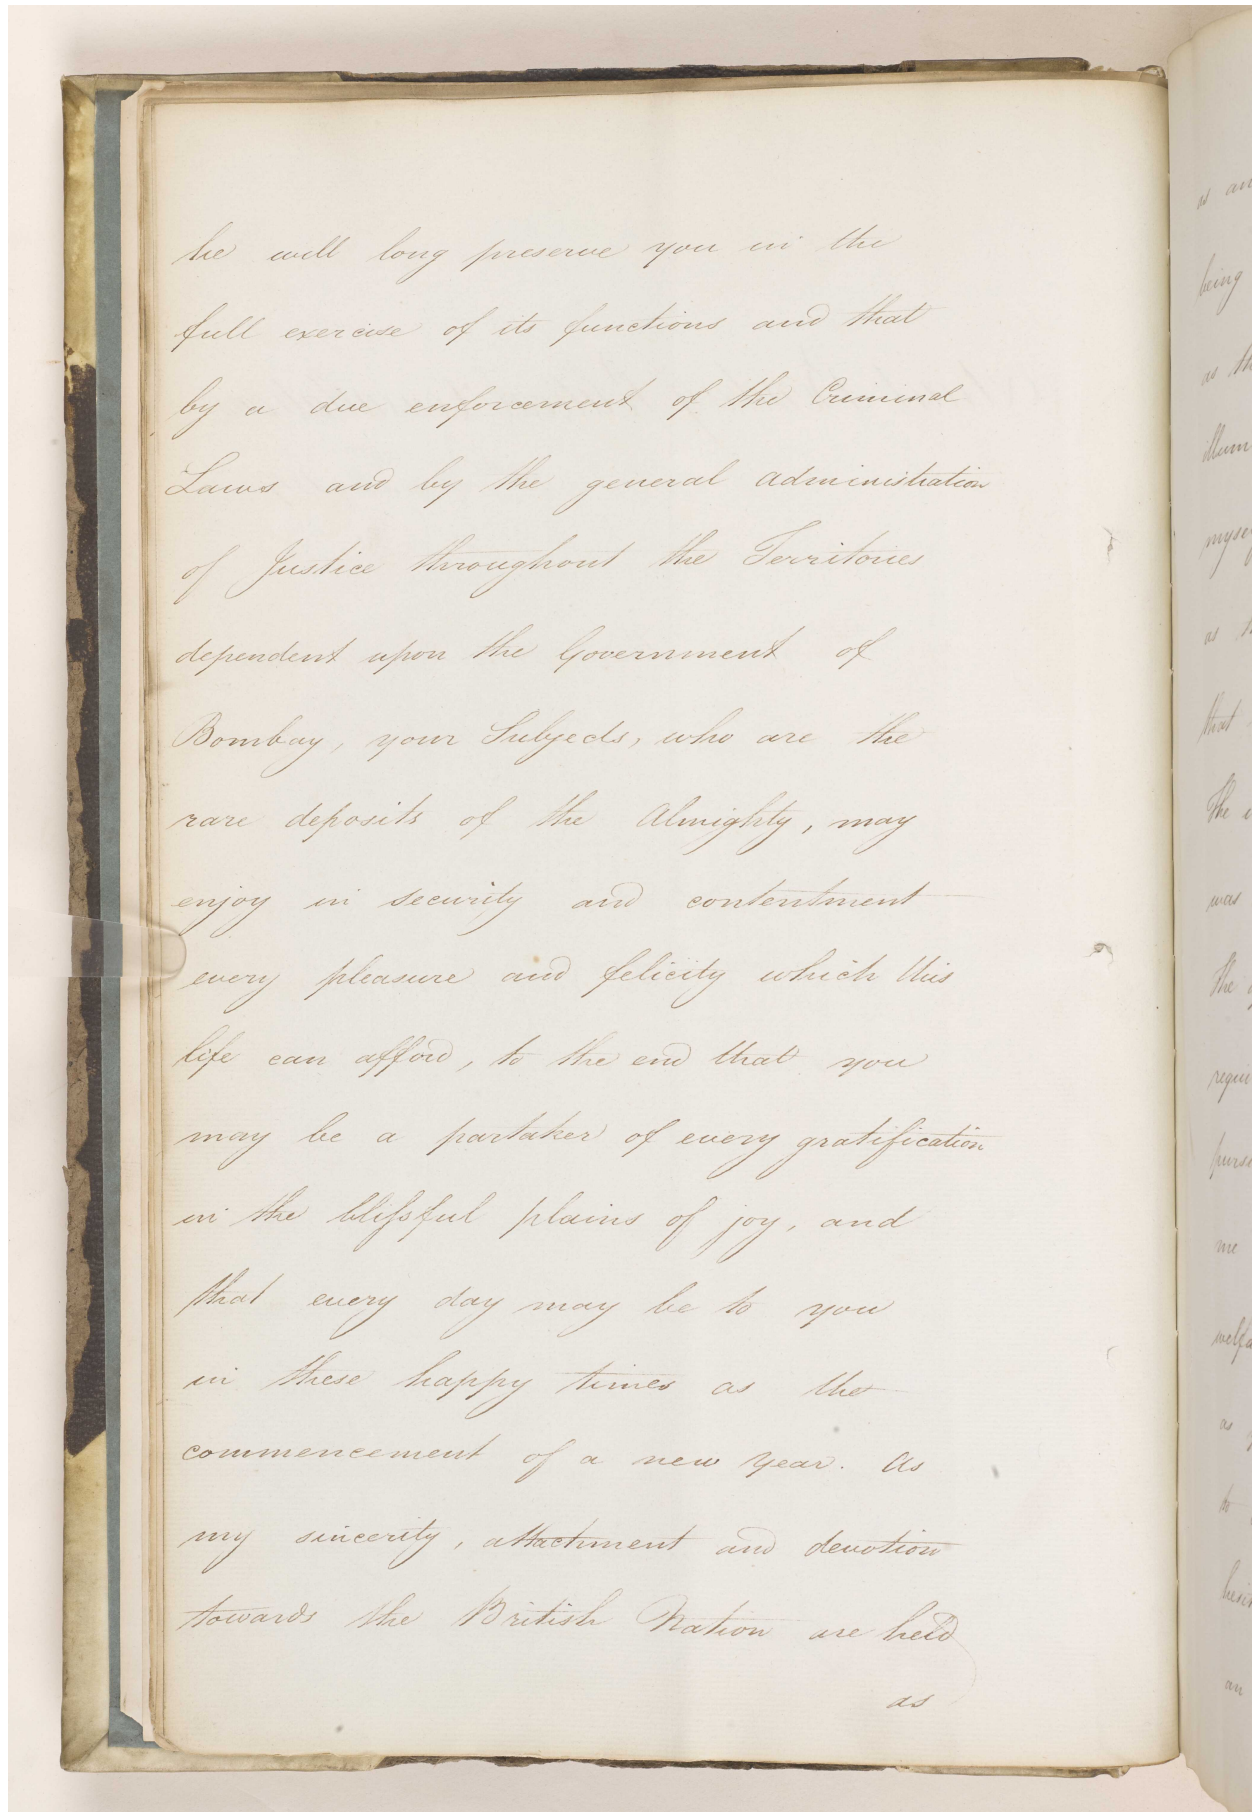 he will long preserve you in the
full exercise of its functions and that
by a due enforcement of the Criminal
Laws and by the general administration
of Justice throughout the Territories
dependent upon the Government of
Bombay, your Subjects, who are the
rare deposits of the Almighty, may
enjoy in security and contentment
every pleasure and felicity which this
life can afford, to the end that you
may be a partaker of every gratification
in the blifsful plains of joy, and
that every day may be to you
in these happy times as the
commencement of a new year. As
my sincerity, attachment and devotion
towards the British Nation are held
as
as
being
as
myse
as
that
The
was
the
me
as
to
an